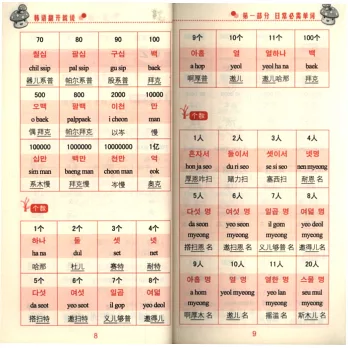 韩语翻开就说
70 80 90 100
칠십 팔십 구십 백
chil ssip pal ssip gu ssip baek
器儿系普 帕尔系普 股系普 拜克
500 800 2000 10000
오백 팔백 이천 만
o baek palppaek i cheon man
偶拜克 帕尔拜克 以岑 慢
100000 1000000 10000000 1亿
십만 백만 천만 억
sim man baeng man cheon man eok
系木慢 拜克慢 岑慢 奥克
个数
1个 2个 3个 4个
하나 둘 셋 넷
ha na dul set net
哈那 杜儿 赛特 耐特
5个 6个 7个 8个
다섯 여섯 일곱 여덟
da seot yeo seot il gop yeo deol
搭扫特 邀扫特 义儿够普 邀得儿
8
第一部分 日常必需单词
9个 10个 11个 100个
아홉 열 열하나 백
a hop yeol yeol ha na baek
啊厚普 邀儿 邀儿哈那 拜克
个数
1人 2人 3人 4人
혼자서 둘이서 셋이서 넷명
hon ja seo du ri seo se si seo nen myeong
厚恩咋扫 赌力扫 塞西扫 耐恩名
5人 6人 7人 8人
다섯 명 여섯 명 일곱 명 여덟 명
da seon myeong yeo seon myeong il gom myeong yeo deol myeong
搭扫恩名 邀扫恩名 义儿够普名 邀得儿名
9人 10人 11人 20人
아홉 명 열 명 열한 명 스물 명
a hom myeong yeol myeong yeo lan myeong seu mul myeong
啊厚木名 邀儿名 摇兰名 斯木儿名
9